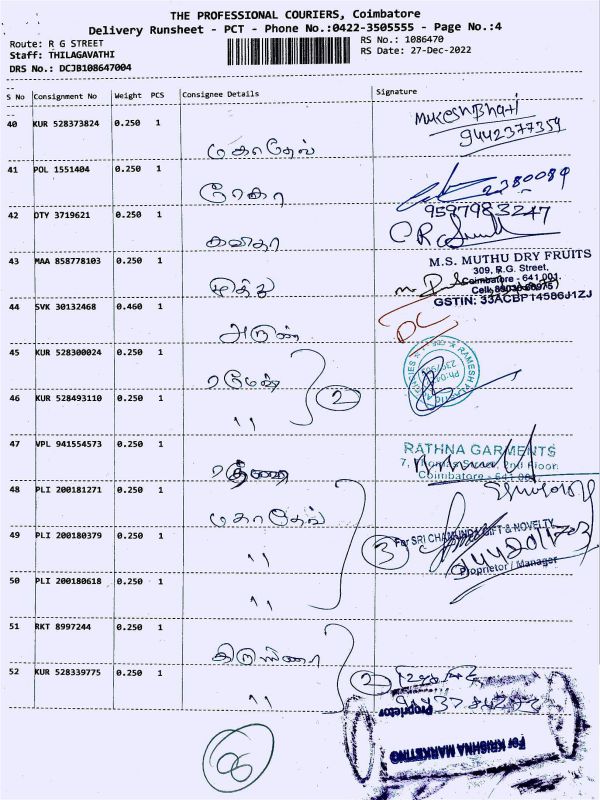 THE PROFESSIONAL COURIERS, Coimbatore
Delivery Runsheet - PCT - Phone No.:0422-3505555 - Page No.:4
Route: R G STREET
RS No.: 1086470
Staff: THILAGAVATHI
RS Date: 27-Dec-2022
DRS No.: DCJB108647004
S No Consignment No Weight PCS Consignee Details Signature
40 KUR 528373824 0.250 1 மகாதேவ் Mukesh Bhati
9442377359
41 POL 1551404 0.250 1 ரேகா 2380089
9597983247
42 DTY 3719621 0.250 1 கவிதா
43 MAA 858778103 0.250 1 முத்து
M.S. MUTHU DRY FRUITS
309, R.G. Street,
Coimbatore - 641 001.
GSTIN: 33ACBP14586J1ZJ
44 SVK 30132468 0.460 1 அருண் DC
45 KUR 528300024 0.250 1 ரமேஷ்
46 KUR 528493110 0.250 1 " 2
47 VPL 941554573 0.250 1
RATHNA GARMENTS
2nd Floor,
Coimbatore - 641 001
48 PLI 200181271 0.250 1 மகாதேவ்
49 PLI 200180379 0.250 1 " 3
For SRI CHAMUNDA GIFT & NOVELTY
Proprietor / Manager
50 PLI 200180618 0.250 1 "
51 RKT 8997244 0.250 1
52 KUR 528339775 0.250 1 " 2
For KRISHNA MARKETING
Proprietor